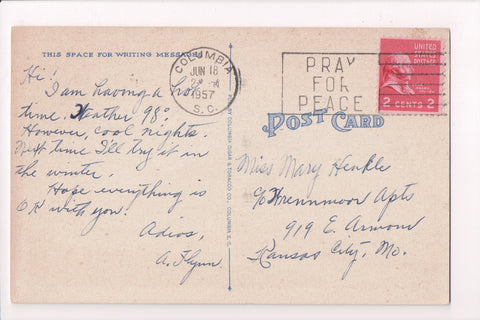 THIS SPACE FOR WRITING MESSAGES
Hi!
I am having a hot
time. Weather 98°.
However, cool nights.
Next time I'll try it in
the winter.
Hope everything is
OK with you!
Adios,
A. Flynn.
COLUMBIA
JUN 18
1957
S.C.
PRAY
FOR
PEACE
UNITED
STATES
POSTAGE
2 CENTS 2
POST CARD
BY COLUMBIA CIGAR & TOBACCO CO., COLUMBIA, S. C.
Miss Mary Henkle
c/o Wrennmoor Apts
919 E. Armond
Kansas City, Mo.